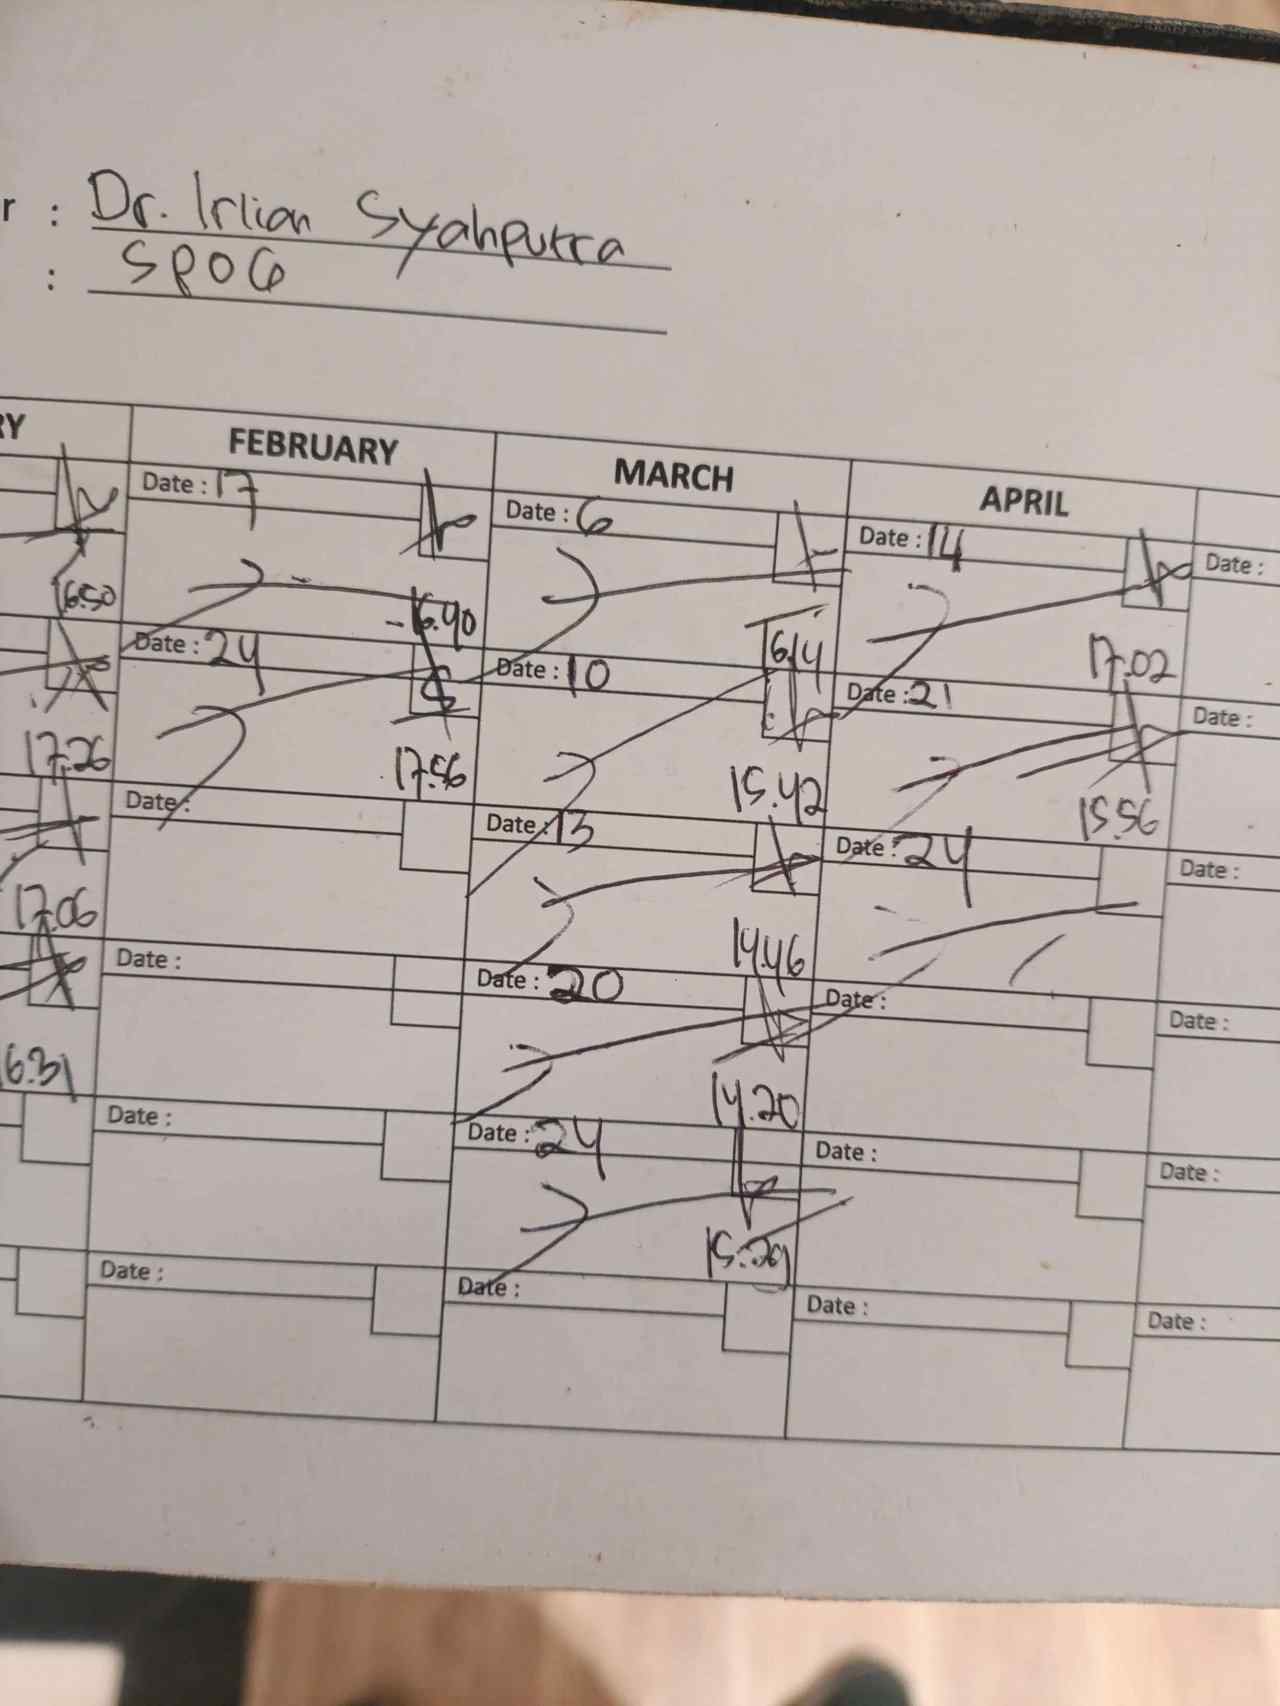 r : Dr. Irlian Syahputra
: SPOG
RY FEBRUARY MARCH APRIL
Date : 17 Date : 6 Date : 14 Date :
16.50 16.40 16.14 17.02
Date : 24 Date : 10 Date : 21 Date :
17.26 17.56 15.42 15.56
Date : Date : 13 Date : 24 Date :
17.06 14.46
Date : Date : 20 Date : Date :
16.31 14.20
Date : Date : 24 Date : Date :
15.29
Date : Date : Date : Date :